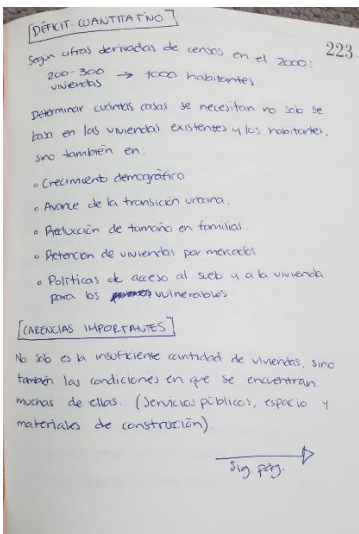 [DÉFICIT CUANTITATIVO]
223
Según cifras derivadas de censos en el 2000:
200-300 viviendas → 1000 habitantes.
Determinar cuántas casas se necesitan no solo se
basa en las viviendas existentes y los habitantes,
sino también en:
• Crecimiento demográfico
• Avance de la transición urbana.
• Reducción de tamaño en familias.
• Retención de viviendas por mercados.
• Políticas de acceso al suelo y a la vivienda
para los vulnerables.
[CARENCIAS IMPORTANTES]
No solo es la insuficiente cantidad de viviendas, sino
también las condiciones en que se encuentran
muchas de ellas. (Servicios públicos, espacio y
materiales de construcción).
Sig. pág.